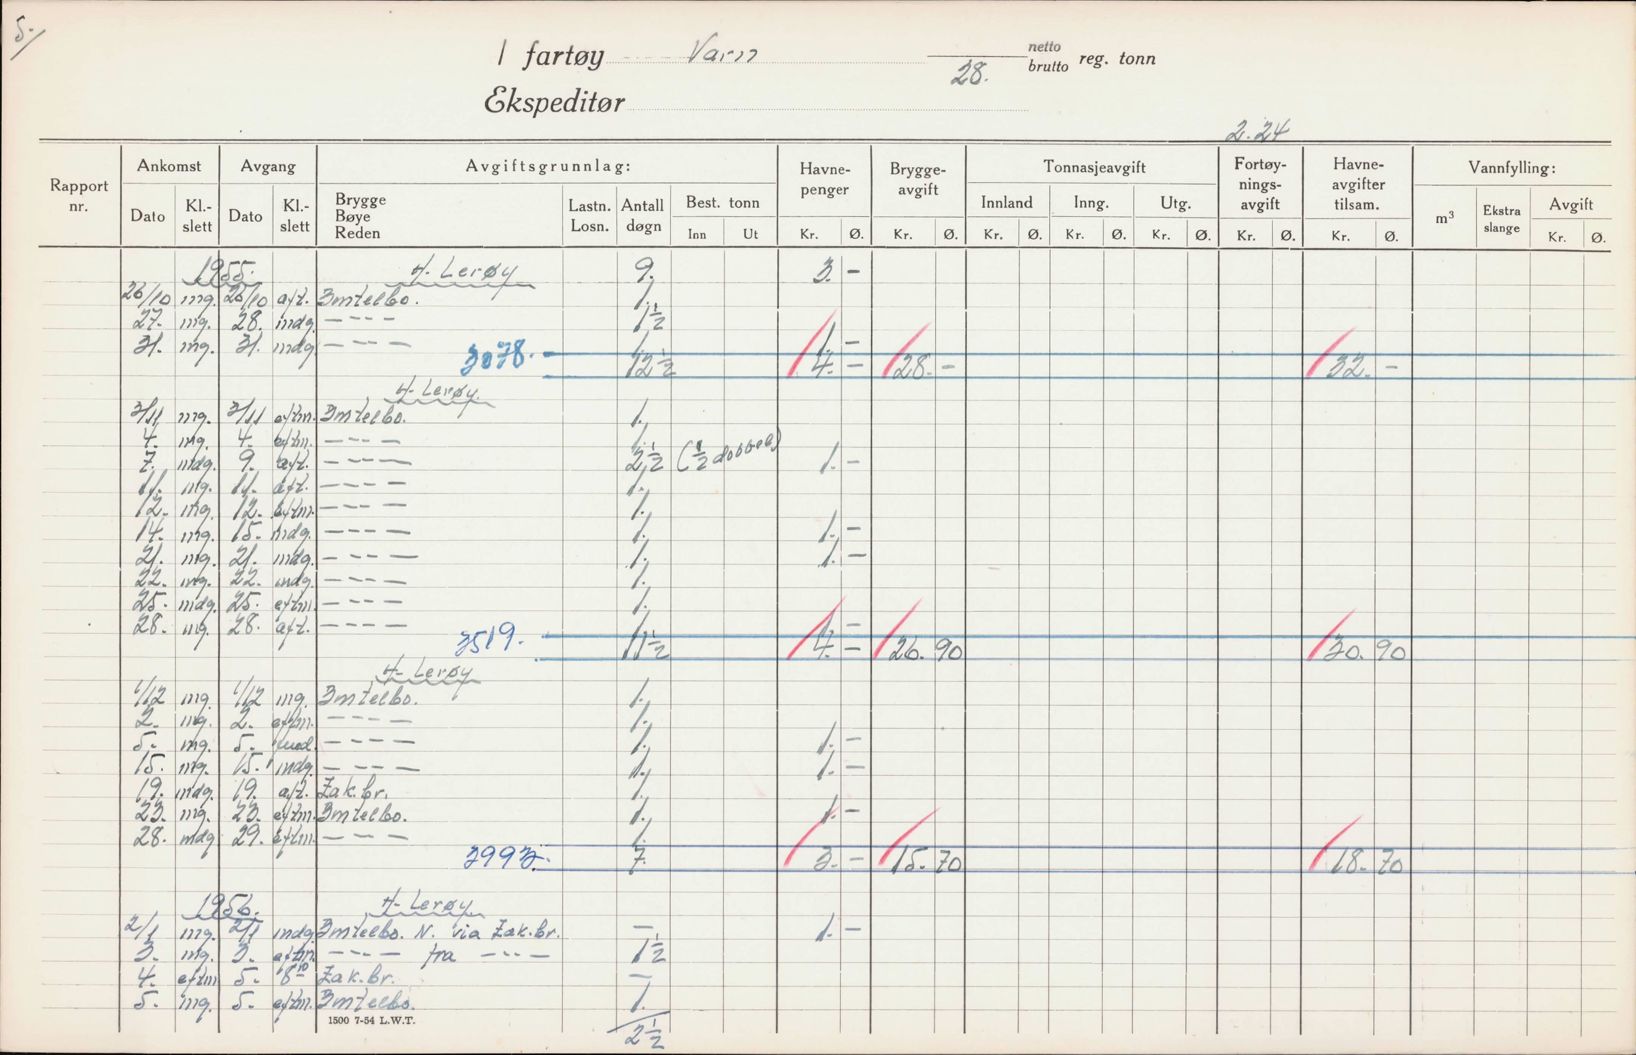 5./
I fartøy Varn 28. netto brutto reg. tonn
Ekspeditør
2.24
Rapport nr. Ankomst Avgang Avgiftsgrunnlag: Havne-penger Brygge-avgift Tonnasjeavgift Fortøy-nings-avgift Havne-avgifter tilsam. Vannfylling:
Dato Kl.-slett Dato Kl.-slett Brygge Bøye Reden Lastn. Losn. Antall døgn Best. tonn Innland Inng. Utg. m³ Ekstra slange Avgift
Inn Ut Kr. Ø. Kr. Ø. Kr. Ø. Kr. Ø. Kr. Ø. Kr. Ø. Kr. Ø. Kr. Ø.
1955. H. Lerøy 9. 3. –
26/10 mg. 26/10 aft. 3mtelbo. 1.
27. mg. 28. mdg. – – – – 1½
31. mg. 31. mdg – – – – 1. 1. –
3078. 12½ 4. – 28. – 32. –
H. Lerøy.
3/11 mg. 3/11 eftm. 3mtelbo. 1.
4. mg. 4. eftm. – – – – 1.
7. mdg. 9. aft. – – – – 2½ (½ dobbel) 1. –
11. mg. 11. aft. – – – – 1.
12. mg. 12. eftm. – – – – 1.
14. mg. 15. mdg. – – – – 1. 1. –
21. mg. 21. mdg. – – – – 1. 1. –
22. mg. 22. mdg. – – – – 1.
25. mdg. 25. eftm. – – – – 1.
28. mg. 28. aft. – – – – 1. 1. –
3519. 11½ 4. – 26. 90 30. 90
H. Lerøy
1/12 mg. 1/12 mg. 3mtelbo. 1.
2. mg. 2. eftm. – – – – 1.
5. mg. 5. – – – – 1. 1. –
15. mg. 15. mdg. – – – – 1. 1. –
19. mdg. 19. aft. Zak.br. 1.
23. mg. 23. eftm. 3mtelbo. 1. 1. –
28. mdg 29. eftm. – – – – 1.
3993. 7. 3. – 15. 70 18. 70
1956. H. Lerøy.
2/1 mg. 2/1 mdg. 3mtelbo. N. via Zak.br. – 1. –
3. mg. 3. eftm. – – – – fra – – – – 1½
4. eftm 5. 8¹⁰ Zak.br. –
5. mg. 5. eftm. 3mtelbo. 1.
1500 7-54 L.W.T.
2½